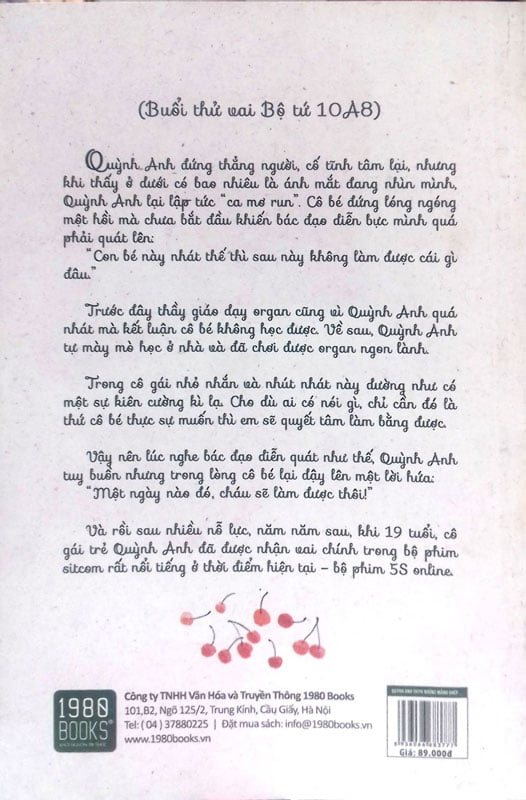 1980
BOOKS
(Buổi thử vai Bộ tứ 10A8)
Quỳnh Anh đứng thẳng người, cố tĩnh tâm lại, nhưng
khi thấy ở dưới có bao nhiêu là ánh mắt đang nhìn mình,
Quỳnh Anh lại lập tức "ca mơ run". Cô bé đứng lóng ngóng
một hồi mà chưa bắt đầu khiến bác đạo diễn bực mình quá
phải quát lên:
"Con bé này nhát thế thì sau này không làm được cái gì
đâu."
Trước đây thầy giáo dạy organ cũng vì Quỳnh Anh quá
nhát mà kết luận cô bé không học được. Về sau, Quỳnh Anh
tự mày mò học ở nhà và đã chơi được organ ngon lành.
Trong cô gái nhỏ nhắn và nhút nhát này dường như có
một sự kiên cường kì lạ. Cho dù ai có nói gì, chỉ cần đó là
thứ cô bé thực sự muốn thì em sẽ quyết tâm làm bằng được.
Vậy nên lúc nghe bác đạo diễn quát như thế, Quỳnh Anh
tuy buồn nhưng trong lòng cô bé lại dậy lên một lời hứa:
"Một ngày nào đó, cháu sẽ làm được thôi!"
Và rồi sau nhiều nỗ lực, năm năm sau, khi 19 tuổi, cô
gái trẻ Quỳnh Anh đã được nhận vai chính trong bộ phim
sitcom rất nổi tiếng ở thời điểm hiện tại – bộ phim 5S online.
1980
BOOKS
Công ty TNHH Văn Hóa và Truyền Thông 1980 Books
101,B2, Ngõ 125/2, Trung Kính, Cầu Giấy, Hà Nội
Tel: ( 04 ) 37880225 | Đặt mua sách: info@1980books.vn
www.1980books.vn
Giá: 89.000đ